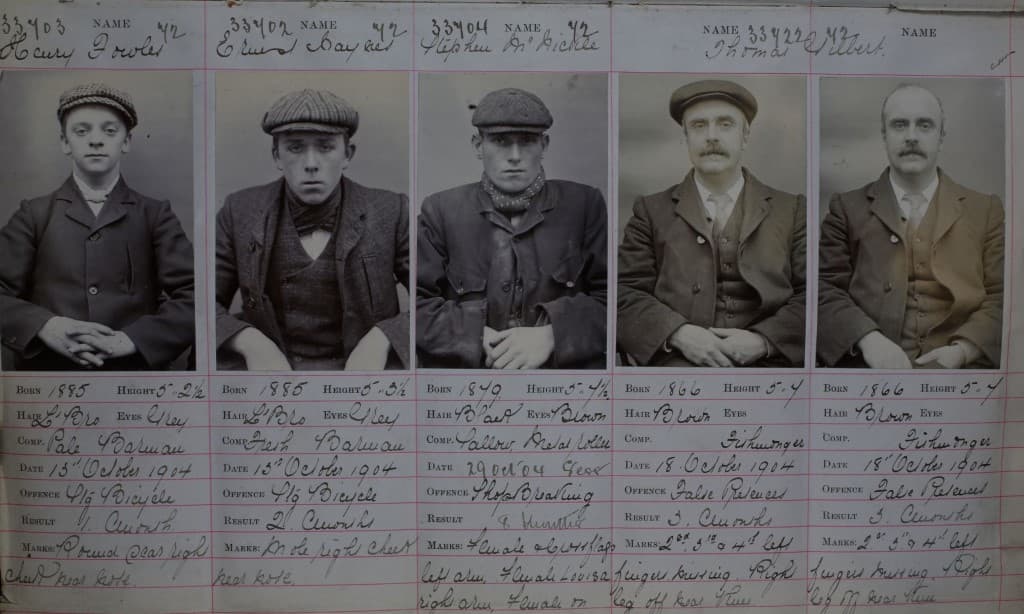 33703 NAME 72 33702 NAME 72 33704 NAME 72 NAME 33722 72 NAME
Henry Fowles Ernest Stephen McNickle Thomas Gilbert
BORN 1885 HEIGHT 5-2½ BORN 1885 HEIGHT 5-5½ BORN 1879 HEIGHT 5-7½ BORN 1866 HEIGHT 5-7 BORN 1866 HEIGHT 5-7
HAIR Lt Bro EYES Grey HAIR Lt Bro EYES Grey HAIR Black EYES Brown HAIR Brown EYES HAIR Brown EYES
COMP. Pale Barman COMP. Fresh Barman COMP. Sallow, Metal roller COMP. Fishmonger COMP. Fishmonger
DATE 15th October 1904 DATE 15th October 1904 DATE 29 Oct 04 Sess DATE 18th October 1904 DATE 18th October 1904
OFFENCE Stg Bicycle OFFENCE Stg Bicycle OFFENCE Shop Breaking OFFENCE False Pretences OFFENCE False Pretences
RESULT 1. Month RESULT 2. Months RESULT 8 Months RESULT 3. Months RESULT 3. Months
MARKS: Round scar right MARKS: Mole right cheek MARKS: Female & Cross flags MARKS: 2nd 3rd & 4th left MARKS: 2nd 3rd & 4th left
cheek near nose. near nose. left arm, Female Louisa fingers missing. Right fingers missing. Right
right arm, Female on leg off near knee leg off near knee